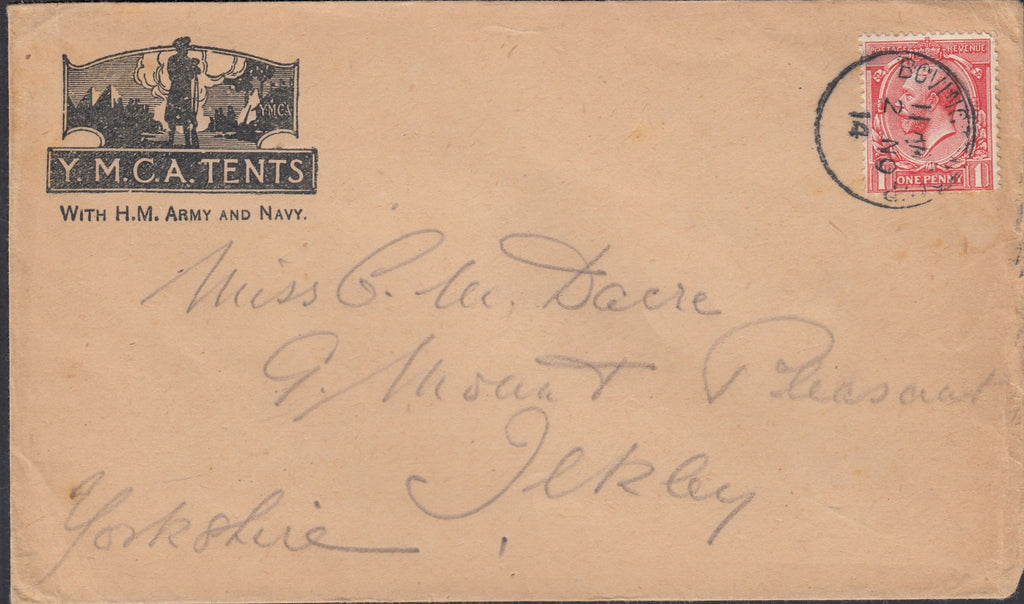 YMCA
Y.M.C.A. TENTS
WITH H.M. ARMY AND NAVY.
POSTAGE REVENUE
1 ONE PENNY 1
2 NO
14
Miss C. M. Dacre
9. Mount Pleasant
Ilkley
Yorkshire